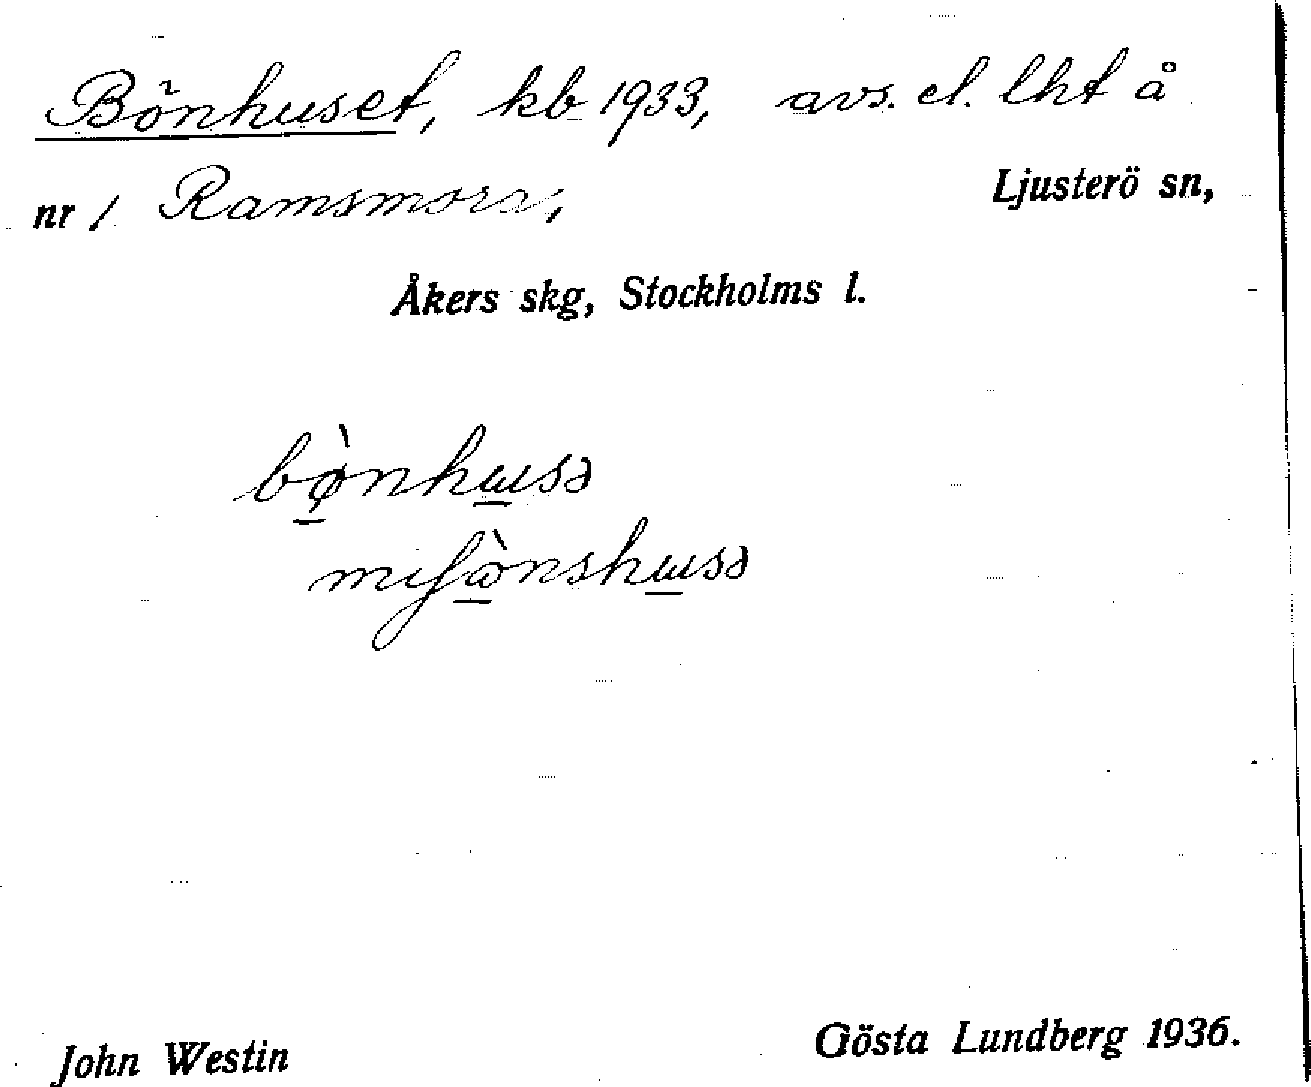 Bönhuset, kb 1933, avs. el. lht å
nr 1 Ramsmora, Ljusterö sn,
Åkers skg, Stockholms l.
bø̀nhusə
miʃònshusə
John Westin Gösta Lundberg 1936.